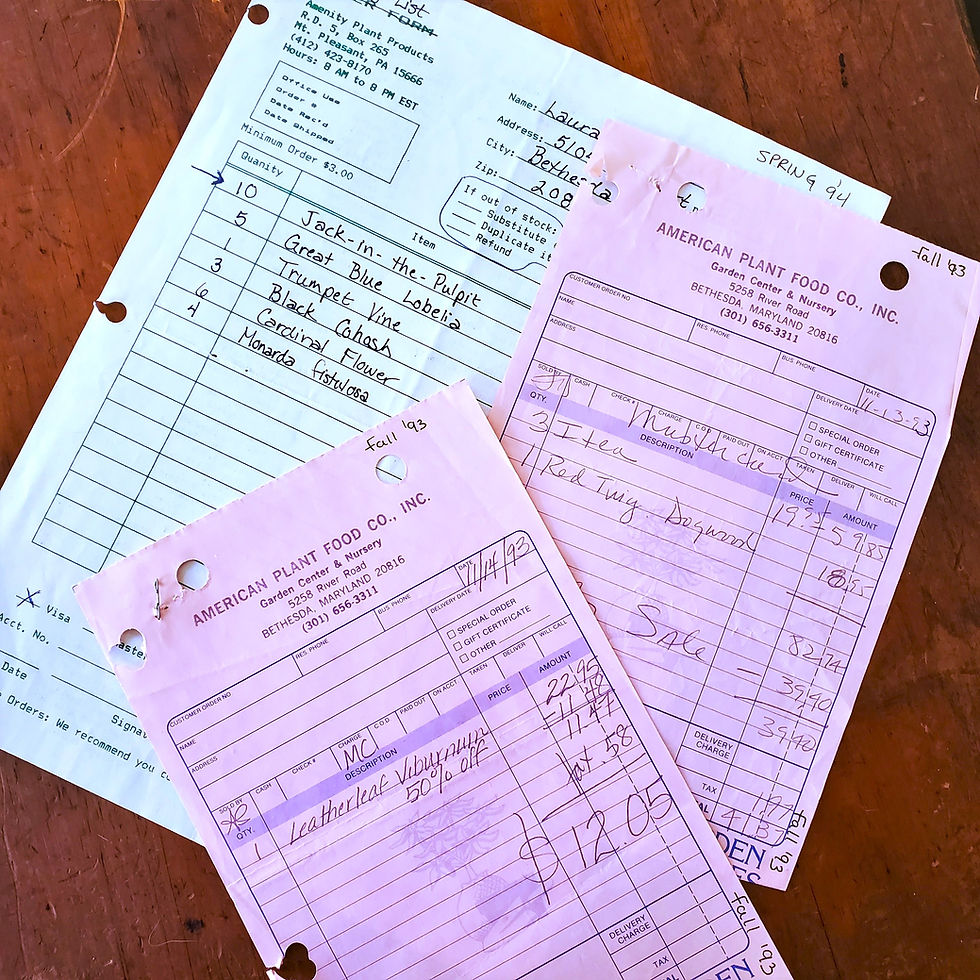 List
ER FORM
Amenity Plant Products
R.D. 5, Box 265
Mt. Pleasant, PA 15666
(412) 423-8170
Hours: 8 AM to 8 PM EST
Office Use
Order #
Date Rec'd
Date Shipped
Minimum Order $3.00
Name: Laura
Address: 510
City: Bethesda
Zip: 208
If out of stock:
Substitute
Duplicate it
Refund
SPRING 94
Quantity Item
10 Jack-in-the-Pulpit
5 Great Blue Lobelia
1 Trumpet Vine
3 Black Cohosh
6 Cardinal Flower
4 Monarda fistulosa
X Visa
aste
Acct. No.
Date
Signa
Orders: We recommend you
fall '93
AMERICAN PLANT FOOD CO., INC.
Garden Center & Nursery
5258 River Road
BETHESDA, MARYLAND 20816
(301) 656-3311
CUSTOMER ORDER NO
NAME RES. PHONE BUS. PHONE
ADDRESS DELIVERY DATE DATE
11-13-93
SOLD BY CASH CHECK # CHARGE C.O.D PAID OUT ON ACCT.
SPECIAL ORDER
GIFT CERTIFICATE
OTHER
TAKEN DELIVER WILL CALL
QTY. DESCRIPTION PRICE AMOUNT
3 Itea 1995 59.85
1 Red Twig Dogwood
Sale
39.40
39.40
DELIVERY CHARGE
TAX 1.97
41.37
DEN
ES
fall '93
fall '93
AMERICAN PLANT FOOD CO., INC.
Garden Center & Nursery
5258 River Road
BETHESDA, MARYLAND 20816
(301) 656-3311
CUSTOMER ORDER NO
NAME RES. PHONE BUS. PHONE
ADDRESS DELIVERY DATE DATE
11/14/93
SOLD BY CASH CHECK # CHARGE C.O.D PAID OUT ON ACCT
MC
SPECIAL ORDER
GIFT CERTIFICATE
OTHER
TAKEN DELIVER WILL CALL
QTY. DESCRIPTION PRICE AMOUNT
1 Leatherleaf Viburnum 22.95
50% off
11.47
tax .58
$ 12.05
DELIVERY CHARGE
TAX
fall '93